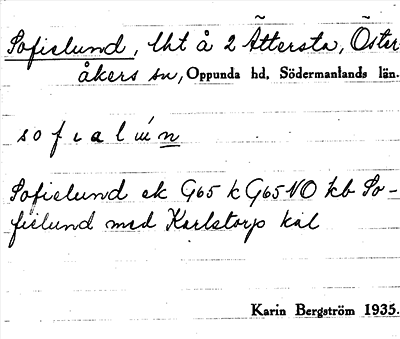 Sofielund, lht å 2 Ättersta, Öster-
åkers sn, Oppunda hd, Södermanlands län.
Sofielund ek G65 k G65 NO kb So-
fielund med Karlstorp kal
Karin Bergström 1935.